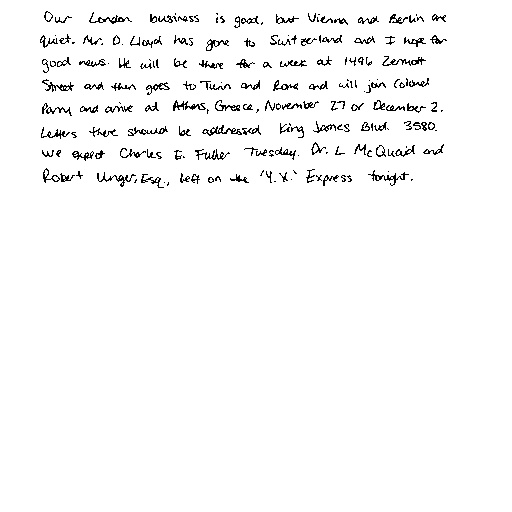 Our London business is good, but Vienna and Berlin are
quiet. Mr. D. Lloyd has gone to Switzerland and I hope for
good news. He will be there for a week at 1496 Zermott
Street and then goes to Turin and Rome and will join Colonel
Parry and arrive at Athens, Greece, November 27 or December 2.
Letters there should be addressed King James Blvd. 3580.
We expect Charles E. Fuller Tuesday. Dr. L McQuaid and
Robert Unger, Esq., left on the 'Y.X.' Express tonight.